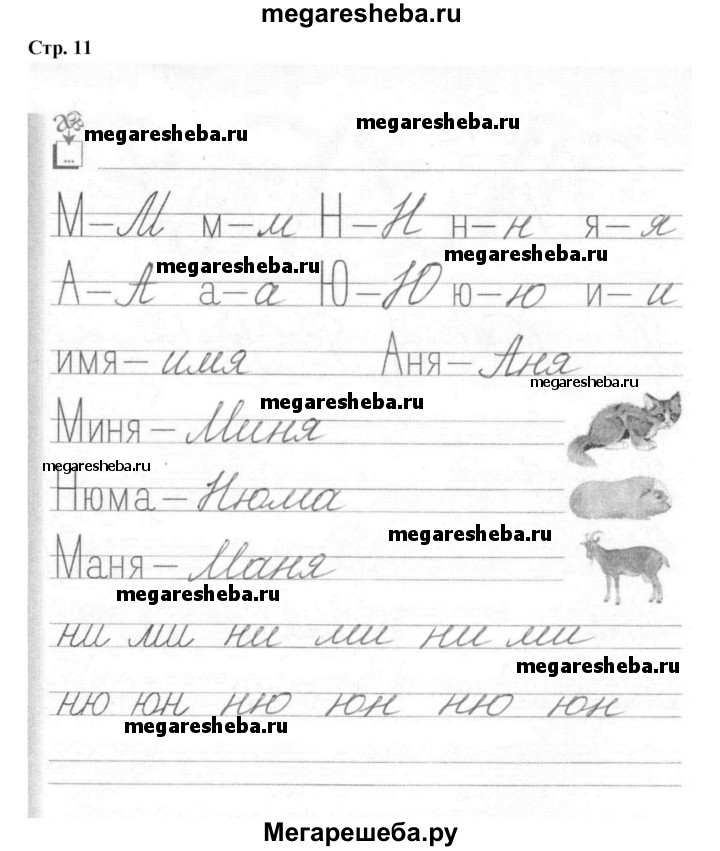 megaresheba.ru
Стр. 11
megaresheba.ru
megaresheba.ru
...
М–М м–м Н–Н н–н я–я
megaresheba.ru
megaresheba.ru
А–А а–а Ю–Ю ю–ю и–и
имя–имя Аня–Аня
megaresheba.ru
megaresheba.ru
Миня–Миня
megaresheba.ru
Нюма–Нюма
megaresheba.ru
Маня–Маня
megaresheba.ru
ни ми ни ми ни ми
megaresheba.ru
ню юн ню юн ню юн
megaresheba.ru
Мегарешеба.ру